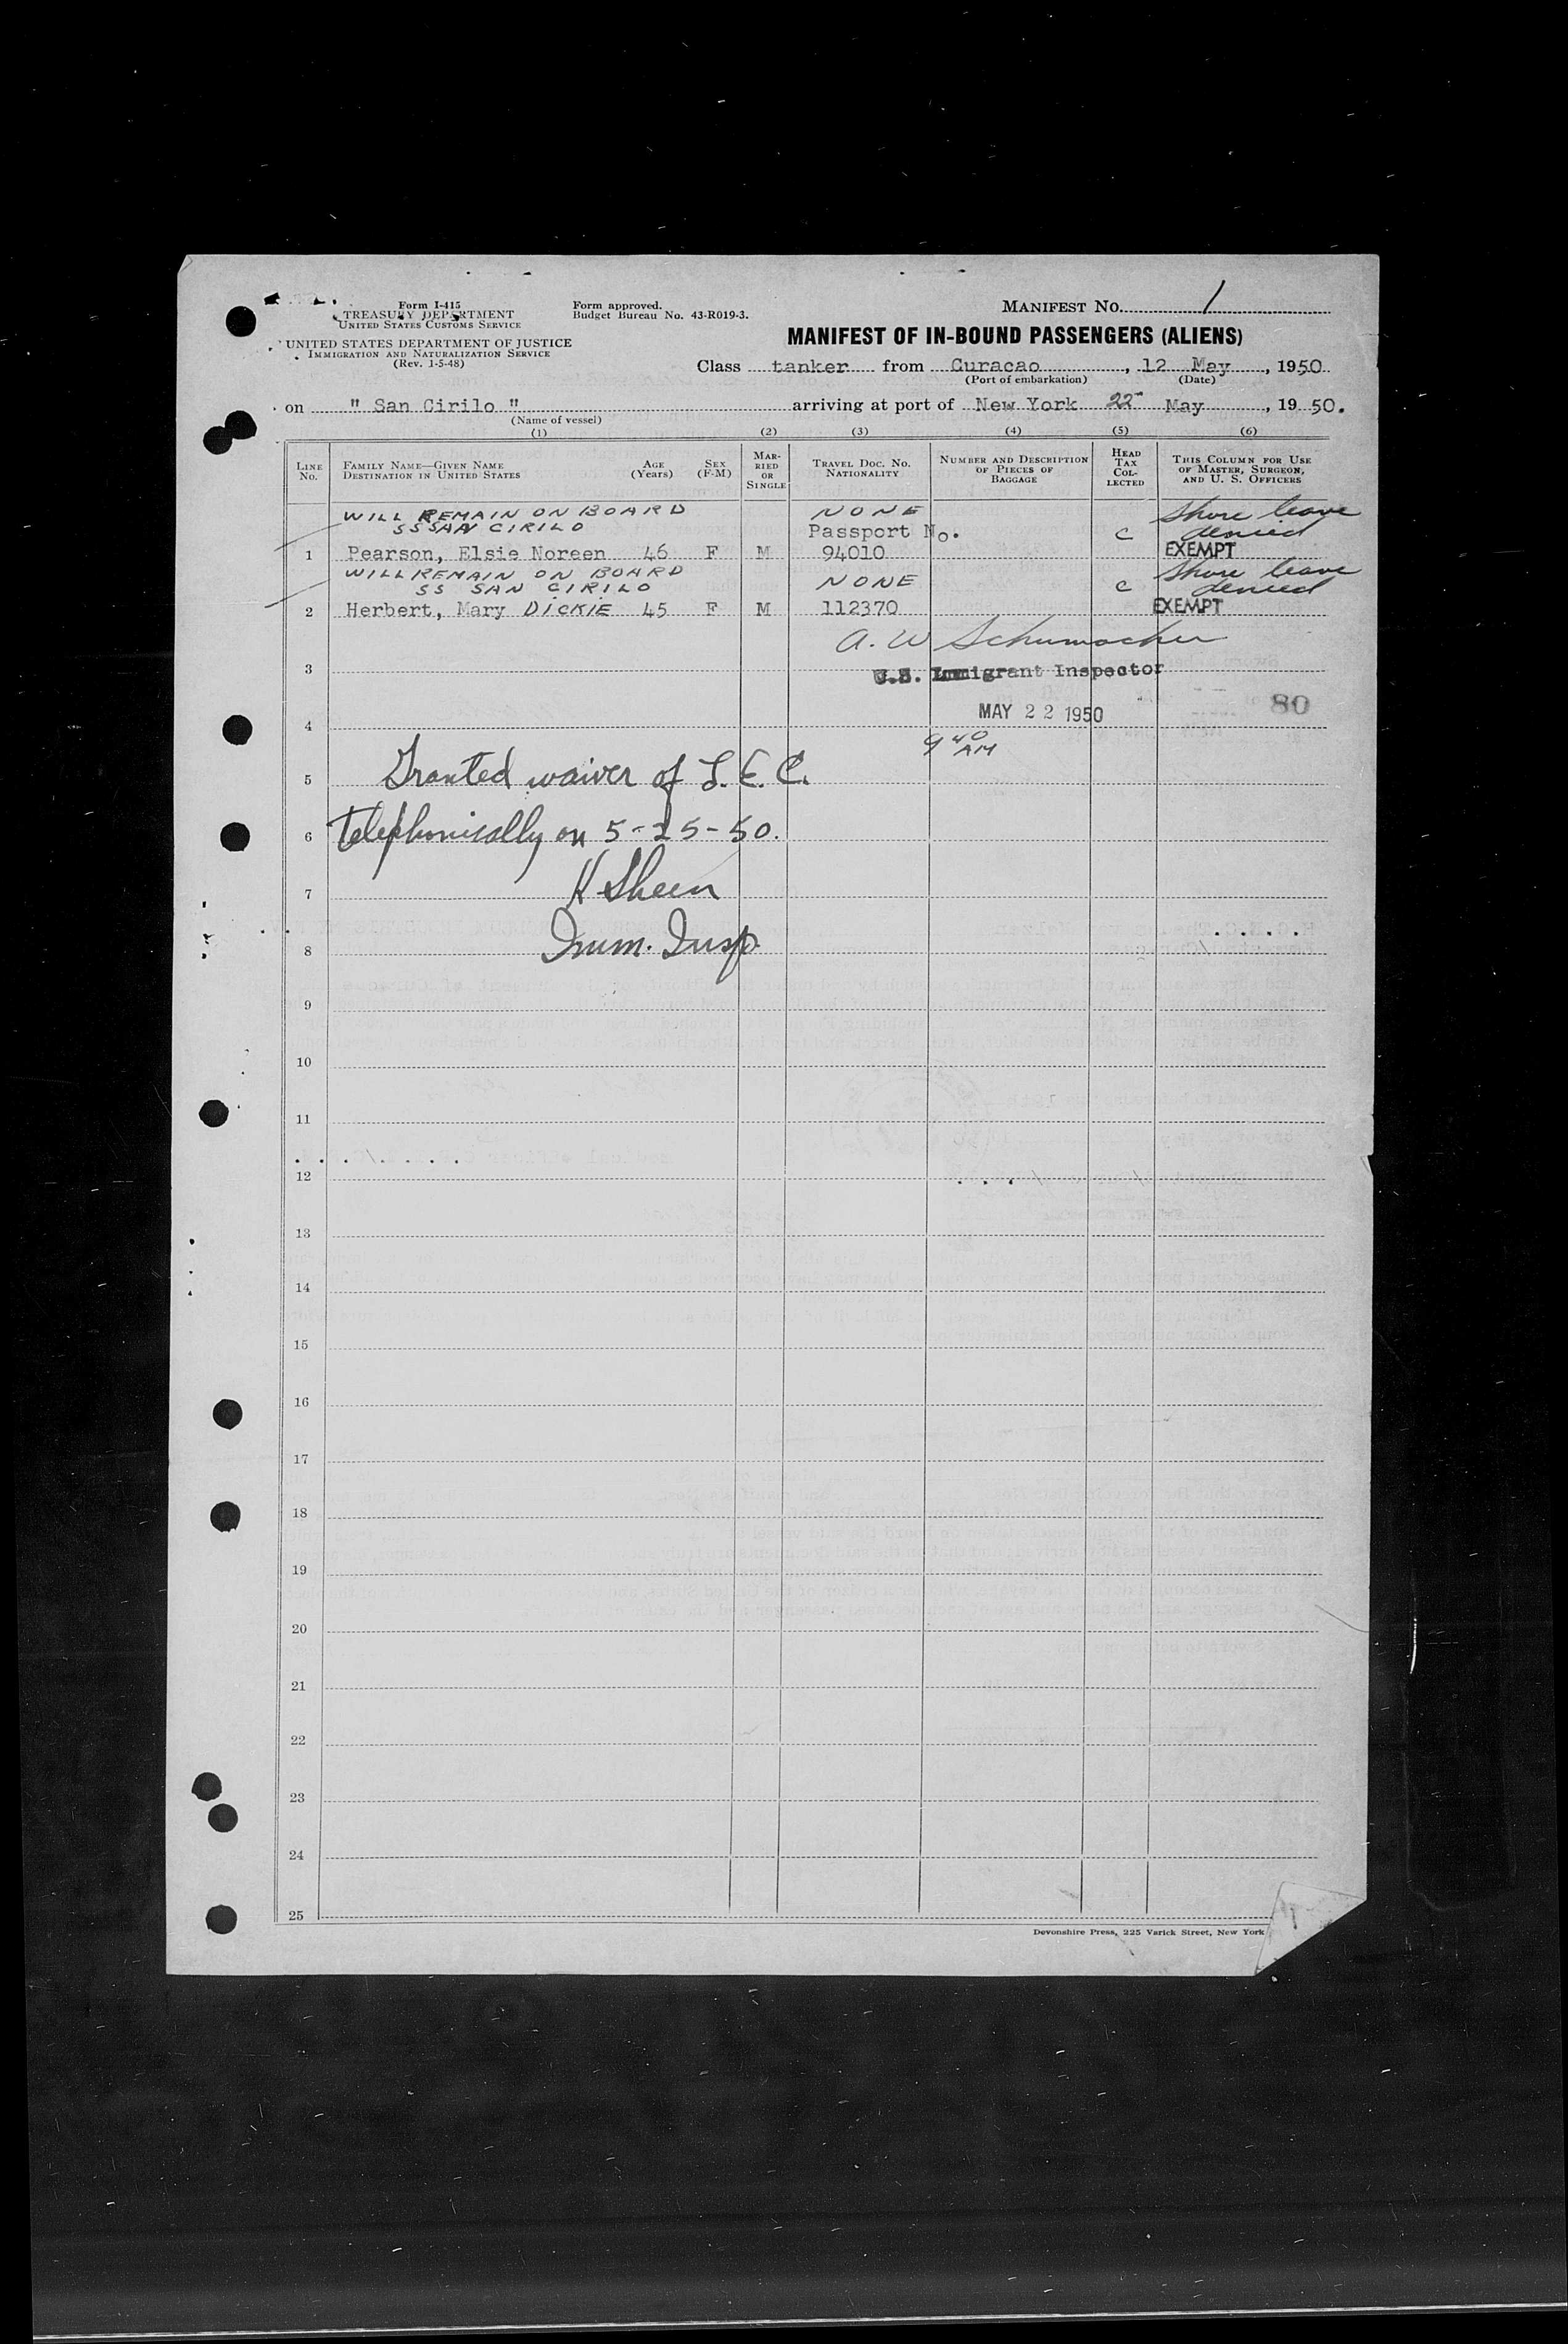 Form I-415
TREASURY DEPARTMENT
UNITED STATES CUSTOMS SERVICE
UNITED STATES DEPARTMENT OF JUSTICE
IMMIGRATION AND NATURALIZATION SERVICE
(Rev. 1-5-48)
Form approved.
Budget Bureau No. 43-R019-3.
MANIFEST No. 1
MANIFEST OF IN-BOUND PASSENGERS (ALIENS)
Class tanker from Curacao, 12 May, 1950
(Port of embarkation) (Date)
on " San Cirilo " arriving at port of New York 22 May, 19 50.
(Name of vessel)
(1) (2) (3) (4) (5) (6)
LINE No. FAMILY NAME—GIVEN NAME DESTINATION IN UNITED STATES AGE (Years) SEX (F-M) MARRIED OR SINGLE TRAVEL DOC. NO. NATIONALITY NUMBER AND DESCRIPTION OF PIECES OF BAGGAGE HEAD TAX COLLECTED THIS COLUMN FOR USE OF MASTER, SURGEON, AND U. S. OFFICERS
WILL REMAIN ON BOARD NONE Shore leave
SS SAN CIRILO Passport No. C denied
1 Pearson, Elsie Noreen 46 F M 94010 EXEMPT
WILL REMAIN ON BOARD NONE Shore leave
SS SAN CIRILO C denied
2 Herbert, Mary DICKIE 45 F M 112370 EXEMPT
A. W Schumacher
3 U.S. Immigrant Inspector
80
4 MAY 22 1950
9 40 AM
5 Granted waiver of L. E. C.
6 telephonically on 5-25-50.
7 K Sheen
8 Imm. Insp.
9
10
11
12
13
14
15
16
17
18
19
20
21
22
23
24
25
Devonshire Press, 225 Varick Street, New York